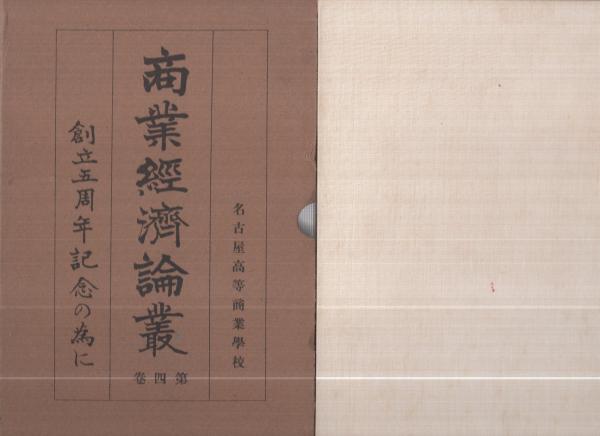 名古屋高等商業學校
商業經濟論叢
第四卷
創立五周年記念の為に